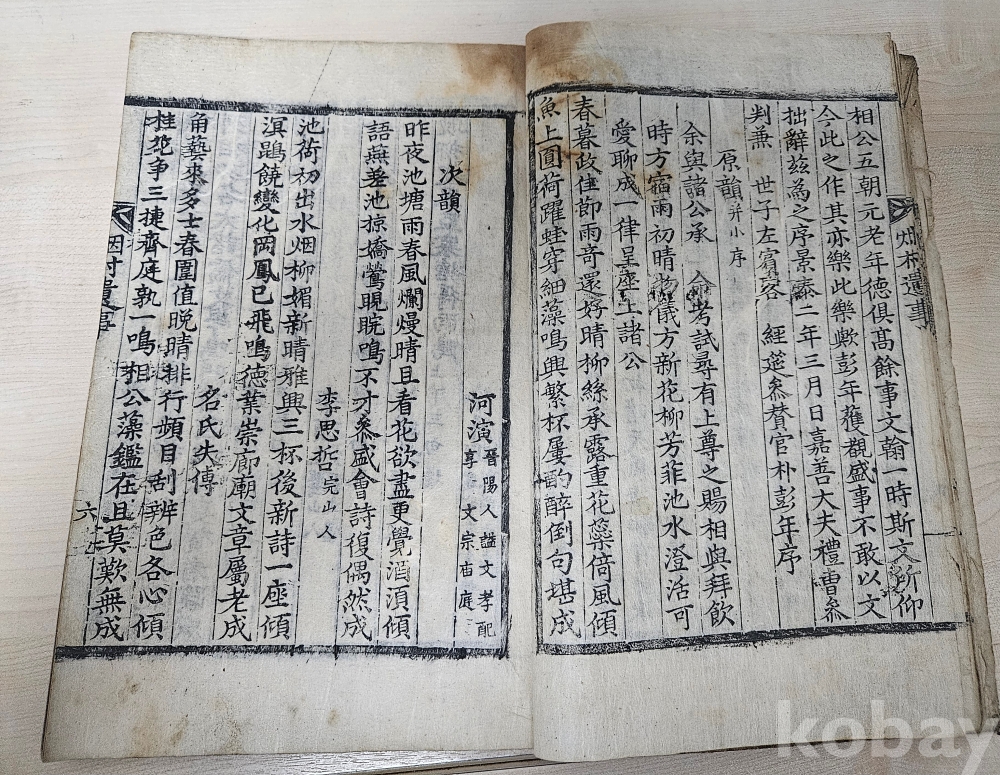 相公五朝元老年德俱高餘事文翰一時斯文所仰
今此之作其亦樂此樂歟彭年獲觀盛事不敢以文
拙辭玆爲之序景泰二年三月日嘉善大夫禮曹參
判兼 世子左賓客 經筵參贊官朴彭年序
原韻并小序
余與諸公承 命考試尋有上尊之賜相與拜飮
時方宿雨初晴物儀方新花柳芳菲池水澄活可
愛聊成一律呈座上諸公
春暮政佳節雨奇還好晴柳絲承露重花蘂倚風傾
魚上圓荷躍蛙穿細藻鳴興繁杯屢酌醉倒句堪成
烟村遺事
次韻
河演晉陽人諡文孝配享文宗庙庭
昨夜池塘雨春風爛熳晴且看花欲盡更覺酒湏傾
語燕差池掠嬌鶯睍睆鳴不才參盛會詩復偶然成
李思哲完山人
池荷初出水烟柳媚新晴雅興三杯後新詩一座傾
溟鵾饒變化岡鳳已飛鳴德業崇廊廟文章屬老成
名氏失傳
角藝來多士春圍值晩晴排行頻目刮辨色各心傾
桂苑爭三捷齊庭孰一鳴相公藻鑑在且莫歎無成
烟村遺事
六
kobay